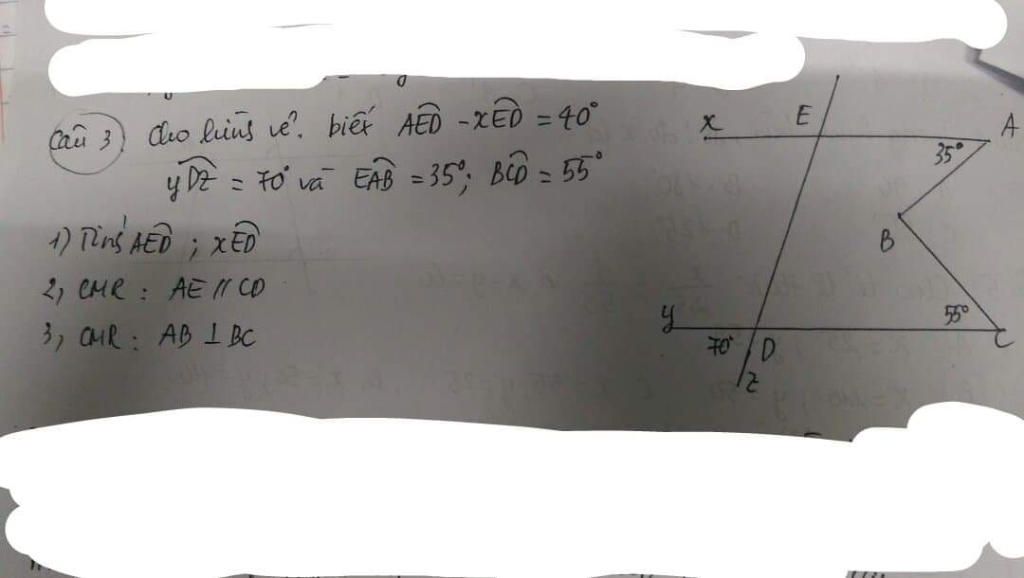 Câu 3) Cho hình vẽ. biết AED - xED = 40°
yDz = 70° và EAB = 35°; BCD = 55°
1) Tính AED ; xED
2, CMR : AE // CD
3, CMR : AB ⊥ BC
x E A
35°
B
y 55° C
70° D
z